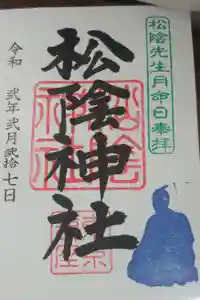 松陰先生月命日奉拝
松陰神社
令和 弐年弐月弐拾七日